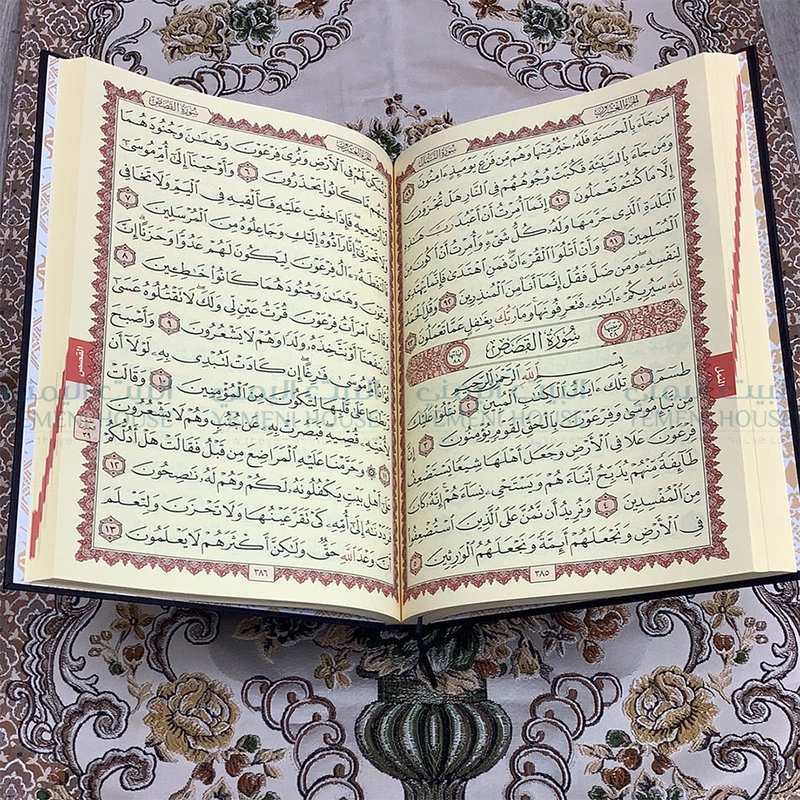 سُورَةُ النَّمْلِ
الجُزْءُ العِشْرُونَ
مَن جَآءَ بِٱلْحَسَنَةِ فَلَهُۥ خَيْرٌ مِّنْهَا وَهُم مِّن فَزَعٍ يَوْمَئِذٍ ءَامِنُونَ ٨٩
وَمَن جَآءَ بِٱلسَّيِّئَةِ فَكُبَّتْ وُجُوهُهُمْ فِى ٱلنَّارِ هَلْ تُجْزَوْنَ
إِلَّا مَا كُنتُمْ تَعْمَلُونَ ٩٠ إِنَّمَآ أُمِرْتُ أَنْ أَعْبُدَ رَبَّ هَٰذِهِ
ٱلْبَلْدَةِ ٱلَّذِى حَرَّمَهَا وَلَهُۥ كُلُّ شَىْءٍ وَأُمِرْتُ أَنْ أَكُونَ مِنَ
ٱلْمُسْلِمِينَ ٩١ وَأَنْ أَتْلُوَا۟ ٱلْقُرْءَانَ فَمَنِ ٱهْتَدَىٰ فَإِنَّمَا يَهْتَدِى
لِنَفْسِهِۦ وَمَن ضَلَّ فَقُلْ إِنَّمَآ أَنَا۠ مِنَ ٱلْمُنذِرِينَ ٩٢ وَقُلِ ٱلْحَمْدُ
لِلَّهِ سَيُرِيكُمْ ءَايَٰتِهِۦ فَتَعْرِفُونَهَا وَمَا رَبُّكَ بِغَٰفِلٍ عَمَّا تَعْمَلُونَ ٩٣
سُورَةُ القَصَصِ
بِسْمِ ٱللَّهِ ٱلرَّحْمَٰنِ ٱلرَّحِيمِ
طسٓمٓ ١ تِلْكَ ءَايَٰتُ ٱلْكِتَٰبِ ٱلْمُبِينِ ٢ نَتْلُوا۟ عَلَيْكَ
مِن نَّبَإِ مُوسَىٰ وَفِرْعَوْنَ بِٱلْحَقِّ لِقَوْمٍ يُؤْمِنُونَ ٣ إِنَّ
فِرْعَوْنَ عَلَا فِى ٱلْأَرْضِ وَجَعَلَ أَهْلَهَا شِيَعًا يَسْتَضْعِفُ
طَآئِفَةً مِّنْهُمْ يُذَبِّحُ أَبْنَآءَهُمْ وَيَسْتَحْىِۦ نِسَآءَهُمْ إِنَّهُۥ كَانَ
مِنَ ٱلْمُفْسِدِينَ ٤ وَنُرِيدُ أَن نَّمُنَّ عَلَى ٱلَّذِينَ ٱسْتُضْعِفُوا۟
فِى ٱلْأَرْضِ وَنَجْعَلَهُمْ أَئِمَّةً وَنَجْعَلَهُمُ ٱلْوَٰرِثِينَ ٥
٣٨٥
النمل
سُورَةُ القَصَصِ
الجُزْءُ العِشْرُونَ
وَنُمَكِّنَ لَهُمْ فِى ٱلْأَرْضِ وَنُرِىَ فِرْعَوْنَ وَهَٰمَٰنَ وَجُنُودَهُمَا
مِنْهُم مَّا كَانُوا۟ يَحْذَرُونَ ٦ وَأَوْحَيْنَآ إِلَىٰٓ أُمِّ مُوسَىٰٓ
أَنْ أَرْضِعِيهِ فَإِذَا خِفْتِ عَلَيْهِ فَأَلْقِيهِ فِى ٱلْيَمِّ وَلَا تَخَافِى
وَلَا تَحْزَنِىٓ إِنَّا رَآدُّوهُ إِلَيْكِ وَجَاعِلُوهُ مِنَ ٱلْمُرْسَلِينَ ٧
فَٱلْتَقَطَهُۥٓ ءَالُ فِرْعَوْنَ لِيَكُونَ لَهُمْ عَدُوًّا وَحَزَنًا إِنَّ
فِرْعَوْنَ وَهَٰمَٰنَ وَجُنُودَهُمَا كَانُوا۟ خَٰطِـِٔينَ ٨
وَقَالَتِ ٱمْرَأَتُ فِرْعَوْنَ قُرَّتُ عَيْنٍ لِّى وَلَكَ لَا تَقْتُلُوهُ عَسَىٰٓ
أَن يَنفَعَنَآ أَوْ نَتَّخِذَهُۥ وَلَدًا وَهُمْ لَا يَشْعُرُونَ ٩ وَأَصْبَحَ
فُؤَادُ أُمِّ مُوسَىٰ فَٰرِغًا إِن كَادَتْ لَتُبْدِى بِهِۦ لَوْلَآ أَن
رَّبَطْنَا عَلَىٰ قَلْبِهَا لِتَكُونَ مِنَ ٱلْمُؤْمِنِينَ ١٠ وَقَالَتْ
لِأُخْتِهِۦ قُصِّيهِ فَبَصُرَتْ بِهِۦ عَن جُنُبٍ وَهُمْ لَا يَشْعُرُونَ
١١ وَحَرَّمْنَا عَلَيْهِ ٱلْمَرَاضِعَ مِن قَبْلُ فَقَالَتْ هَلْ أَدُلُّكُمْ
عَلَىٰٓ أَهْلِ بَيْتٍ يَكْفُلُونَهُۥ لَكُمْ وَهُمْ لَهُۥ نَٰصِحُونَ ١٢
فَرَدَدْنَٰهُ إِلَىٰٓ أُمِّهِۦ كَىْ تَقَرَّ عَيْنُهَا وَلَا تَحْزَنَ وَلِتَعْلَمَ
أَنَّ وَعْدَ ٱللَّهِ حَقٌّ وَلَٰكِنَّ أَكْثَرَهُمْ لَا يَعْلَمُونَ ١٣
٣٨٦
القصص
البيت اليمني
YEMENI HOUSE